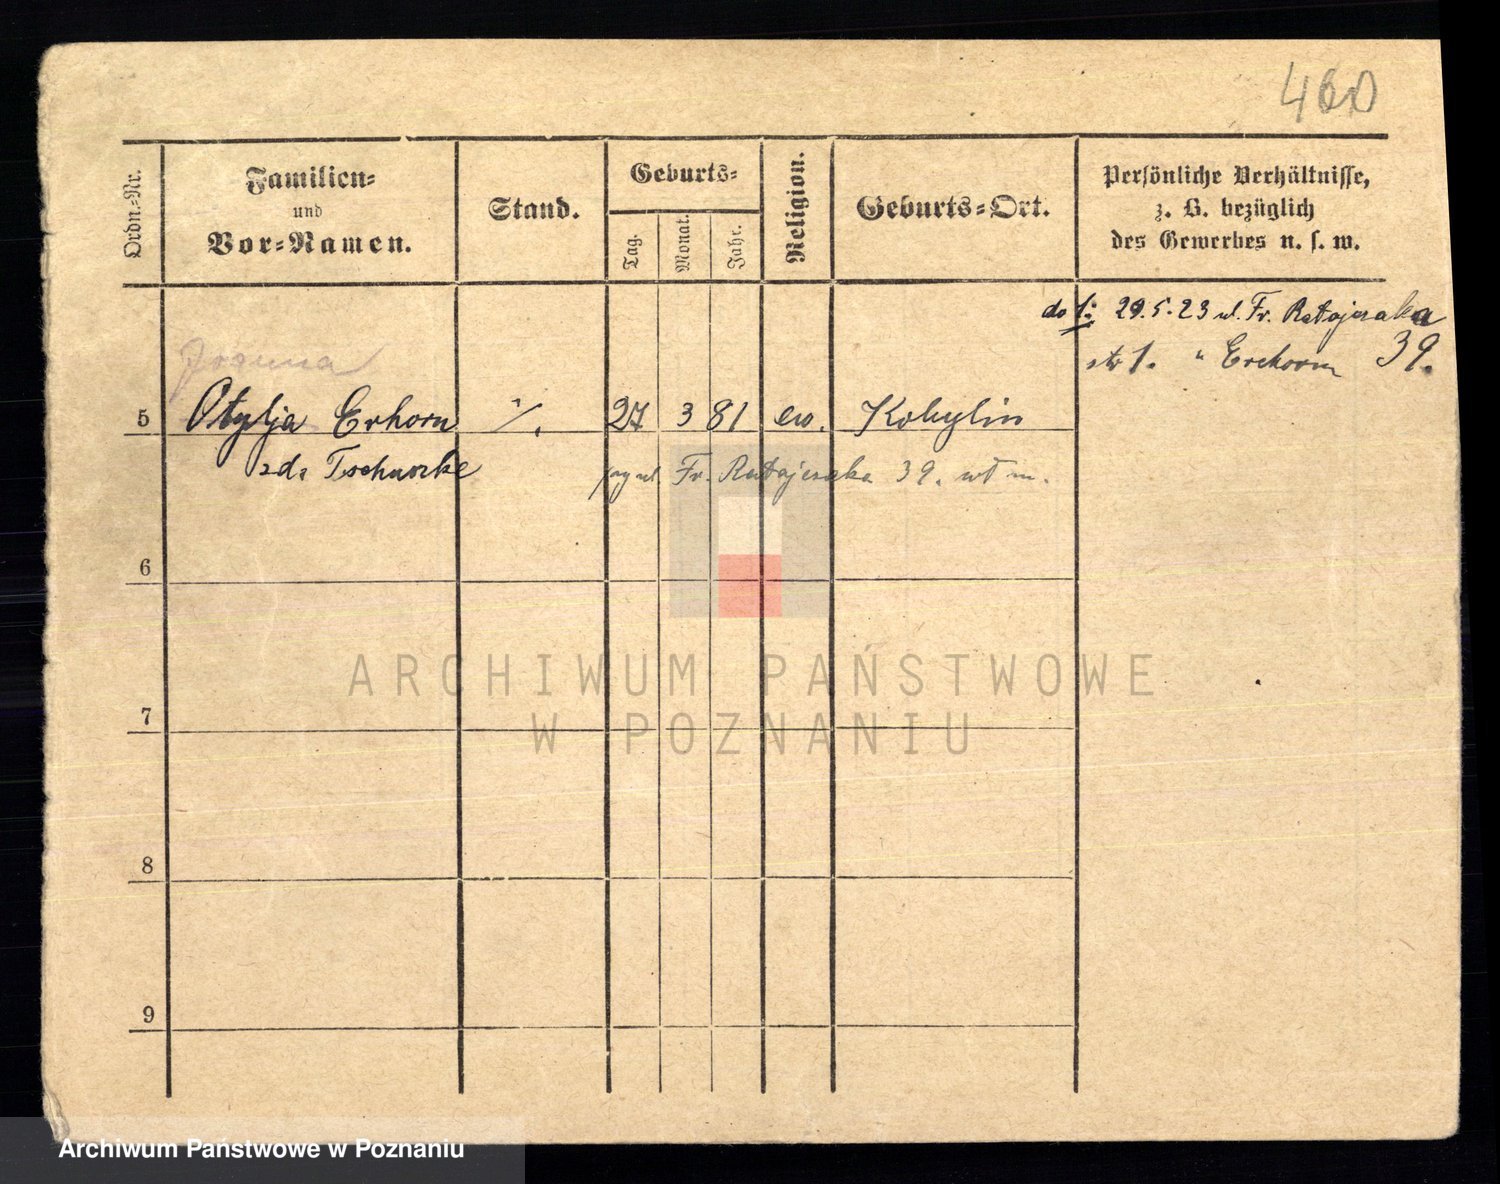 460
Ordn.-Nr.
Familien-
und
Vor-Namen.
Stand.
Geburts-
Tag.
Monat.
Jahr.
Religion.
Geburts-Ort.
Persönliche Verhältnisse,
z. B. bezüglich
des Gewerbes u. s. w.
do 1: 29.5.23 ul. Fr. Ratajczaka
39.
Joanna
5 Otylja Erhorn ./. 27 3 81 ew. Kobylin
Fr. Ratajczaka 39. wł m.
6
7
8
9
ARCHIWUM PAŃSTWOWE
W POZNANIU
Archiwum Państwowe w Poznaniu